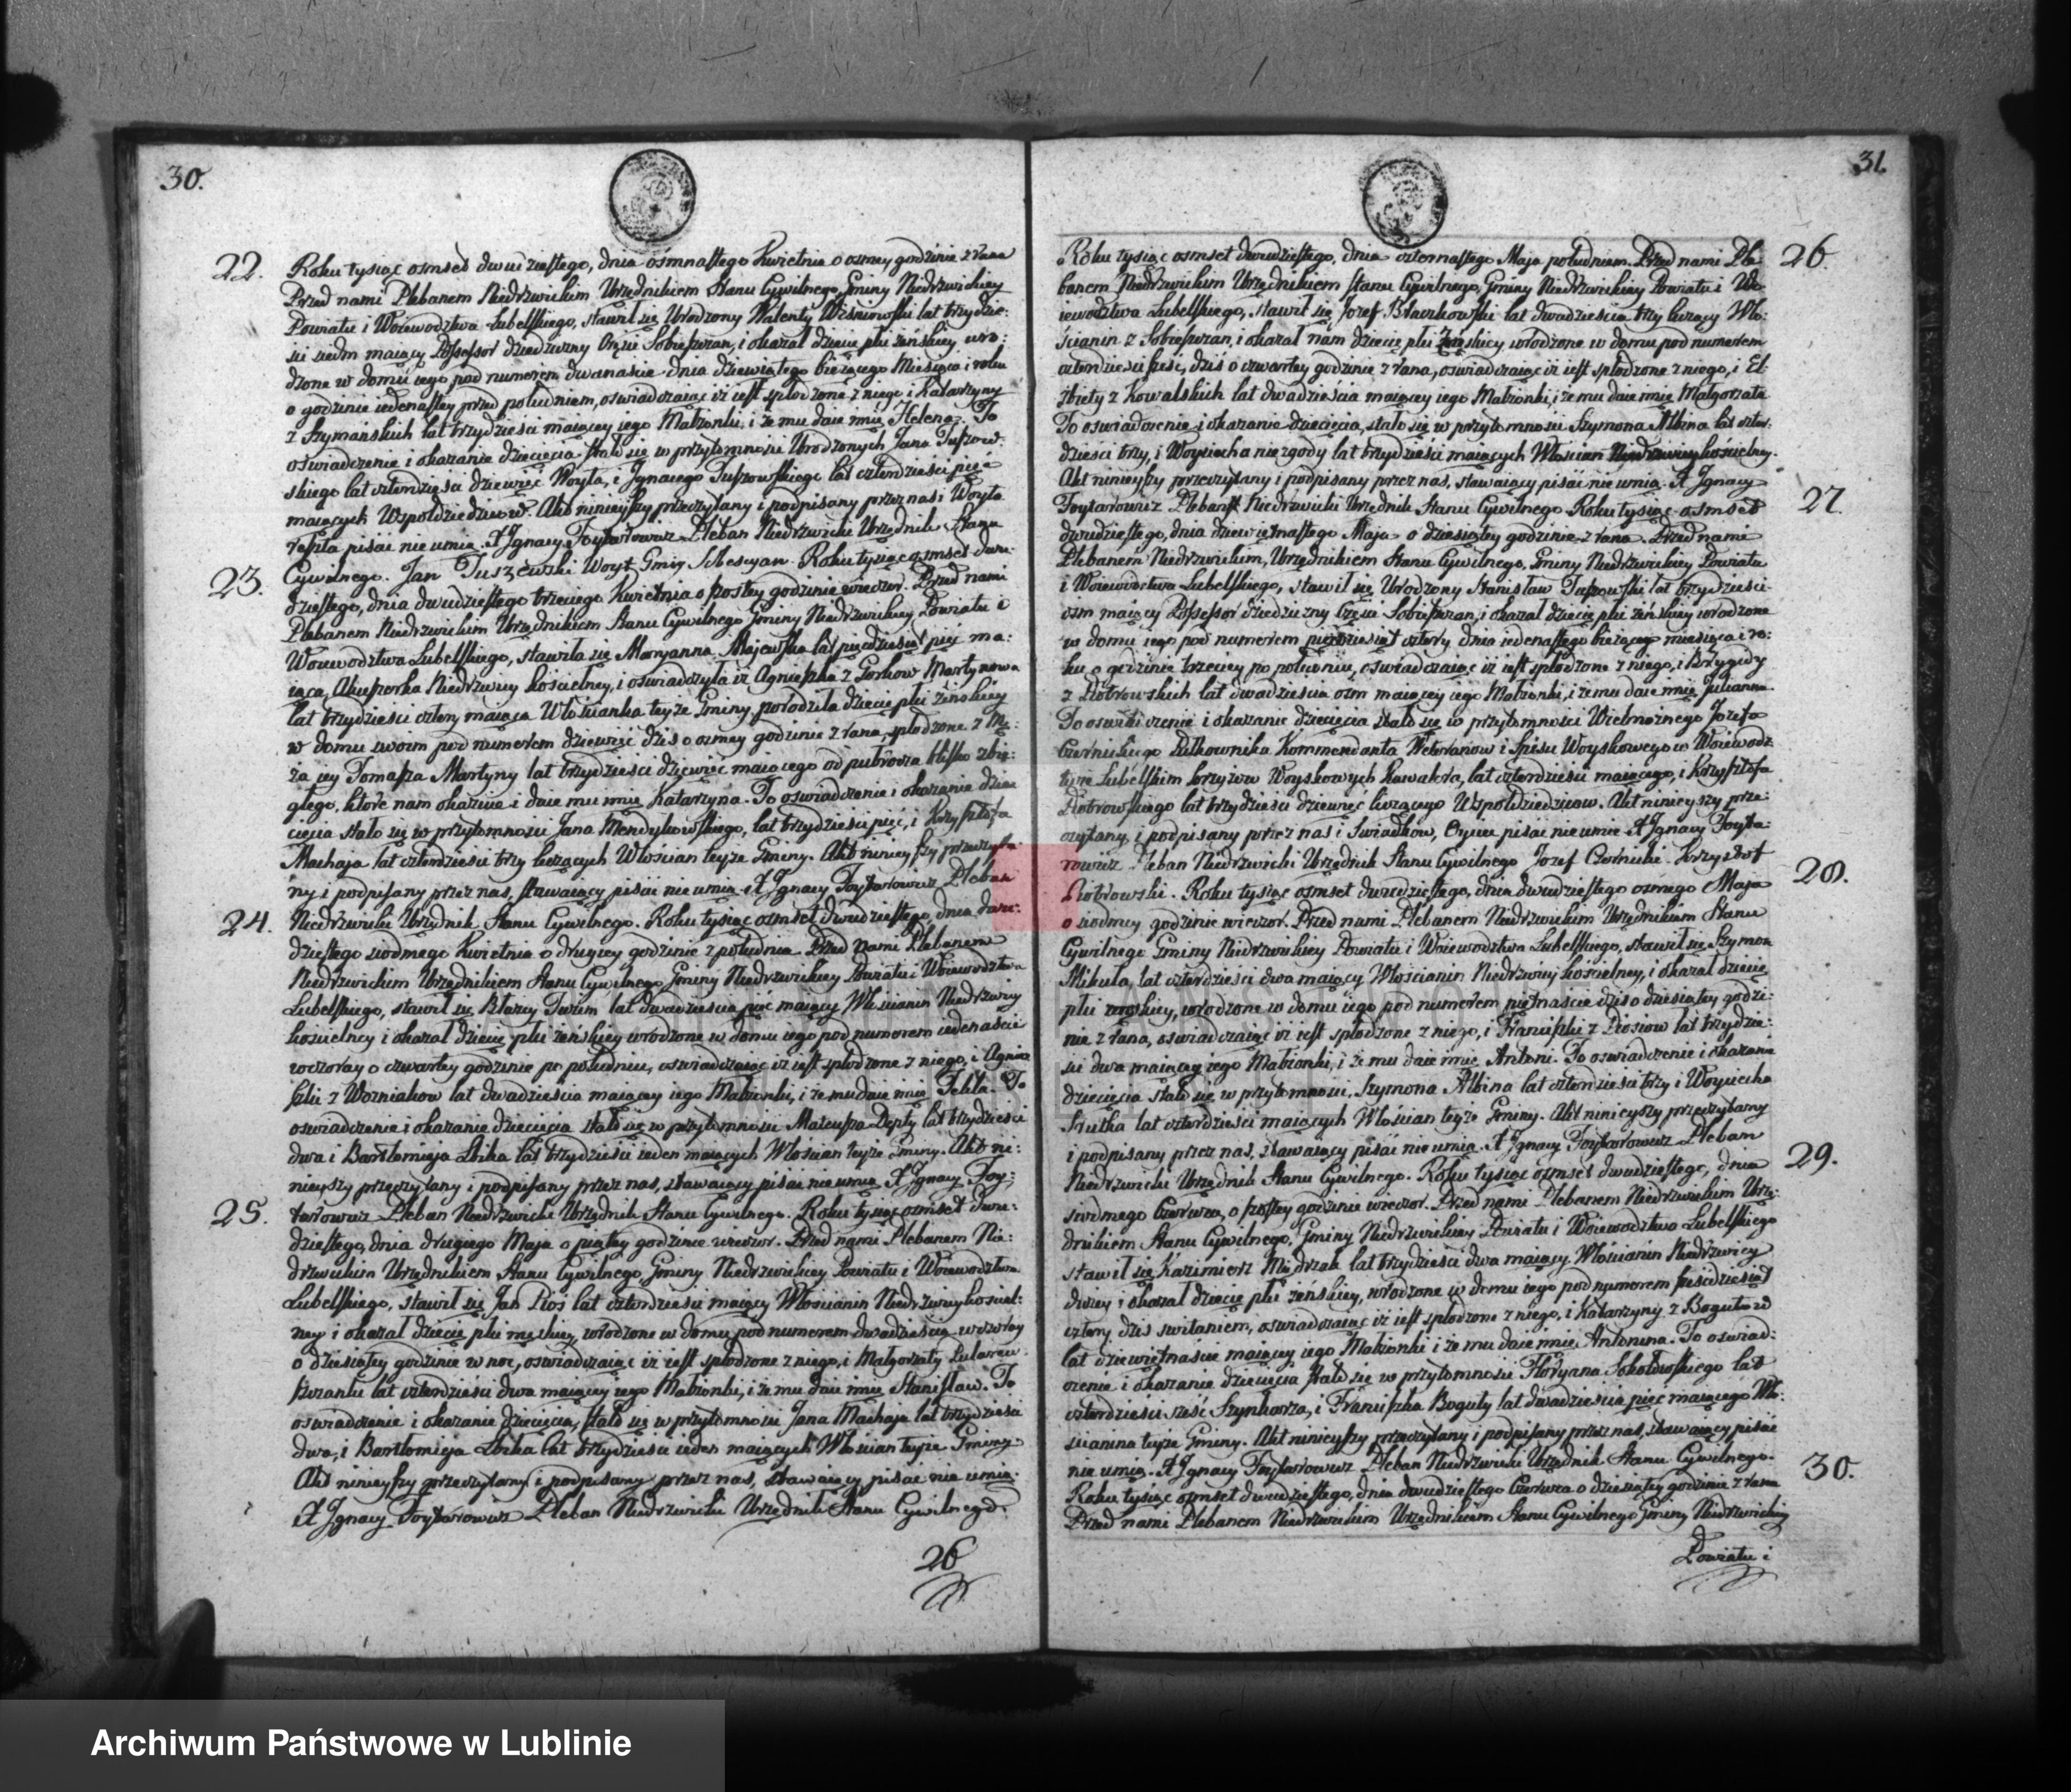 30.
22. Roku tysiąc ośmset dwudziestego, dnia ośmnastego Kwietnia o osmey godzinie z rana
Przed nami Plebanem Niedrzwickim Urzędnikiem Stanu Cywilnego Gminy Niedrzwickiey
Powiatu i Woiewodztwa Lubelskiego, stawił się Urodzony Walenty Wiśniowski lat trzydzie:
ści siedm maiący Possessor dziedziczny Części Sobieszczan, i okazał dziecie płci żeńskiey uro:
dzone w domu iego pod numerem dwanaście dnia dziewiątego bieżącego Miesiąca i roku
o godzinie iedenastey przed południem, oswiadczaiąc iż iest spłodzone z niego i Katarzyny
z Szymańskich lat trzydzieści maiącey iego Małżonki, i że mu daie imię Helena. To
oświadczenie i okazanie dziecięcia stało się w przytomności Urodzonych Jana Tuszow:
skiego lat czterdzieści dziewięć Woyta, i Ignacego Tuszowskiego lat czterdzieści pięć
maiących Wspołdziedziców. Akt ninieyszy przeczytany i podpisany przez nas i Woyta
reszta pisać nie umią. X Jgnacy Foytarowicz Pleban Niedrzwicki Urzędnik Stanu
23. Cywilnego. Jan Tuszewski Woyt Gminy Sobieszczan. Roku tysiąc ośmset dwu:
dziestego, dnia dwudziestego trzeciego Kwietnia o szostey godzinie wieczor. Przed nami
Plebanem Niedrzwickim Urzędnikiem Stanu Cywilnego Gminy Niedrzwickiey Powiatu i
Woiewodztwa Lubelskiego, stawiła się Maryanna Majewska lat pięcdziesiąt pięć ma:
iąca, Akuszerka Niedrzwicy kościelney, i oświadczyła iż Agnieszka z Gorkow Martynowa
lat trzydzieści cztery maiąca Włościanka teyże Gminy, porodziła dziecie płci żeńskiey
w domu swoim pod numerem dziewięć dziś o osmey godzinie z rana, spłodzone z Mę:
ża iey Tomasza Martyny lat trzydzieści dziewięć maiącego od pułtora blisko zbie:
głego, które nam okazuie i daie mu imię Katarzyna. To oświadczenie i okazanie dzie
cięcia stało się w przytomności Jana Mendykowskiego, lat trzydzieści pięć, i Krzysztofa
Machaja lat czterdzieści trzy liczących Włościan teyże Gminy. Akt ninieyszy przeczyta
ny i podpisany przez nas, stawaiący pisać nie umią. X Jgnacy Foytarowicz Pleban
24. Niedrzwicki Urzędnik Stanu Cywilnego. Roku tysiąc ośmset dwudziestego, dnia dwu:
dziestego siodmego Kwietnia o drugiey godzinie z południa. Przed nami Plebanem
Niedrzwickim Urzędnikiem Stanu Cywilnego Gminy Niedrzwickiey Powiatu i Woiewodztwa
Lubelskiego, stawił się Błażey lat dwadzieścia pięć maiący Włościanin Niedrzwicy
kościelney i okazał dziecie płci żeńskiey urodzone w domu iego pod numerem iedenaście
wczoray o czwartey godzinie po południu, oswiadczaiąc iż iest spłodzone z niego, i Agnie
szki z Wozniakow lat dwadzieścia maiącey iego Małżonki, i że mu daie imię Tekla. To
oświadczenie i okazanie dziecięcia stało się w przytomności Mateusza Depty lat trzydzieści
dwa i Bartłomieja Zbika lat trzydzieści ieden maiących Włościan teyże Gminy. Akt ni:
nieyszy przeczytany i podpisany przez nas, stawaiący pisać nie umią. X Jgnacy Foy:
25. tarowicz Pleban Niedrzwicki Urzędnik Stanu Cywilnego. Roku tysiąc ośmset dwu:
dziestego, dnia drugiego Maja o piątey godzinie wieczor. Przed nami Plebanem Nie:
drzwickim Urzędnikiem Stanu Cywilnego Gminy Niedrzwickiey Powiatu i Woiewodztwa
Lubelskiego, stawił się Jan Pios lat czterdzieści maiący Włościanin Niedrzwicy kościel:
ney i okazał dziecię płci męskiey, urodzone w domu pod numerem dwadzieścia wczoray
o dziesiątey godzinie w noc, oswiadczaiąc iż iest spłodzone z niego, i Małgorzaty
lat czterdzieści dwa maiącey iego Małżonki, i że mu daie imię Stanisław. To
oświadczenie i okazanie dziecięcia, stało się w przytomności Jana Machaja lat trzydzieści
dwa, i Bartłomieja Zbika lat trzydzieści ieden maiących Włościan teyże Gminy
Akt ninieyszy przeczytany i podpisany przez nas, stawaiący pisać nie umią.
X Jgnacy Foytarowicz Pleban Niedrzwicki Urzędnik Stanu Cywilnego.
26
31.
Roku tysiąc ośmset dwudziestego, dnia czternastego Maja południem. Przed nami Ple 26.
banem Niedrzwickim Urzędnikiem Stanu Cywilnego, Gminy Niedrzwickiey Powiatu i Wo
iewodztwa Lubelskiego, stawił się Jozef Błaszkowski lat dwadzieścia trzy liczący Wło:
ścianin z Sobieszczan, i okazał nam dziecię płci żeńskiey urodzone w domu pod numerem
czterdzieści sześć, dziś o czwartey godzinie z rana, oswiadczaiąc iż iest spłodzone z niego, i El:
żbiety z Kowalskich lat dwadzieścia maiącey iego Małżonki, i że mu daie imię Małgorzata
To oswiadczenie i okazanie dziecięcia, stało się w przytomności Szymona Albina lat czter:
dzieści trzy, i Woyciecha niezgody lat trzydzieści maiących Włościan Niedrzwicy kościelney.
Akt ninieyszy przeczytany i podpisany przez nas, stawaiący pisać nie umią. X Jgnacy
Foytarowicz Pleban Niedrzwicki Urzędnik Stanu Cywilnego Roku tysiąc ośmset 27.
dwudziestego, dnia dziewiętnastego Maja o dziesiątey godzinie z rana. Przed nami
Plebanem Niedrzwickim, Urzędnikiem Stanu Cywilnego, Gminy Niedrzwickiey Powiatu
i Woiewodztwa Lubelskiego, stawił się Urodzony Stanisław Tuszowski lat trzydzieści
ośm maiący Possessor dziedziczny Części Sobieszczan, i okazał dziecię płci żeńskiey urodzone
w domu iego pod numerem pięcdziesiąt cztery dnia iedenastego bieżącego miesiąca i ro:
ku o godzinie trzeciey po południu, oświadczaiąc iż iest spłodzone z niego, i Brygidy
z Piotrowskich lat dwadzieścia ośm maiącey iego Małżonki, i że mu daie imię Julianna.
To oswiadczenie i okazanie dziecięcia stało się w przytomności Wielmożnego Jozefa
Czernickiego Pułkownika Kommendanta Weteranow i Spisu Woyskowego w Woiewodz
twie Lubelskim krzyżow Woyskowych Kawalera, lat czterdzieści maiącego, i Krzysztofa
Piotrowskiego lat trzydzieści dziewięć liczącego Wspołdziedzicow. Akt ninieyszy prze:
czytany, i podpisany przez nas i Swiadkow, Oyciec pisać nie umie. X Jgnacy Foyta:
rowicz Pleban Niedrzwicki Urzędnik Stanu Cywilnego Jozef Czernicki. Krzysztof
Piotrowski. Roku tysiąc ośmset dwudziestego, dnia dwudziestego osmego Maja 28.
o siodmey godzinie wieczor. Przed nami Plebanem Niedrzwickim Urzędnikiem Stanu
Cywilnego Gminy Niedrzwickiey Powiatu i Woiewodztwa Lubelskiego, stawił się Szymon
Mikula, lat czterdzieści dwa maiący Włościanin Niedrzwicy kościelney, i okazał dziecię
płci męskiey, urodzone w domu iego pod numerem piętnaście dziś o dziesiątey godzi:
nie z rana, oswiadczaiąc iż iest spłodzone z niego, i Franciszki z Piosiow lat trzydzie:
ści dwa maiącey iego Małżonki, i że mu daie imię Antoni. To oswiadczenie i okazanie
dziecięcia stało się w przytomności, Szymona Albina lat czterdzieści trzy i Woyciecha
Srutka lat czterdzieści maiących Włościan teyże Gminy. Akt ninieyszy przeczytany
i podpisany przez nas, stawaiący pisać nie umią. X Jgnacy Foytarowicz Pleban
Niedrzwicki Urzędnik Stanu Cywilnego. Roku tysiąc ośmset dwudziestego, dnia 29.
siodmego Czerwca, o szostey godzinie wieczor. Przed nami Plebanem Niedrzwickim Urzę:
dnikiem Stanu Cywilnego, Gminy Niedrzwickiey Powiatu i Woiewodztwa Lubelskiego
stawił się Kazimierz Mędrzak lat trzydzieści dwa maiący Włościanin Niedrzwicy
dużey i okazał dziecię płci żeńskiey, urodzone w domu iego pod numerem sześćdziesiąt
cztery dziś switaniem, oswiadczaiąc iż iest spłodzone z niego, i Katarzyny z Bogutow
lat dziewiętnaście maiącey iego Małżonki i że mu daie imię Antonina. To oswiad:
czenie i okazanie dziecięcia stało się w przytomności Floryana Sokołowskiego lat
czterdzieści sześć Szynkarza, i Franciszka Boguty lat dwadzieścia pięć maiącego Wło:
ścianina teyże Gminy. Akt ninieyszy przeczytany i podpisany przez nas, stawaiący pisać
nie umią. X Jgnacy Foytarowicz Pleban Niedrzwicki Urzędnik Stanu Cywilnego. 30.
Roku tysiąc ośmset dwudziestego, dnia dwudziestego Czerwca o dziesiątey godzinie z rana
Przed nami Plebanem Niedrzwickim Urzędnikiem Stanu Cywilnego Gminy Niedrzwickiey
Powiatu i
Archiwum Państwowe w Lublinie